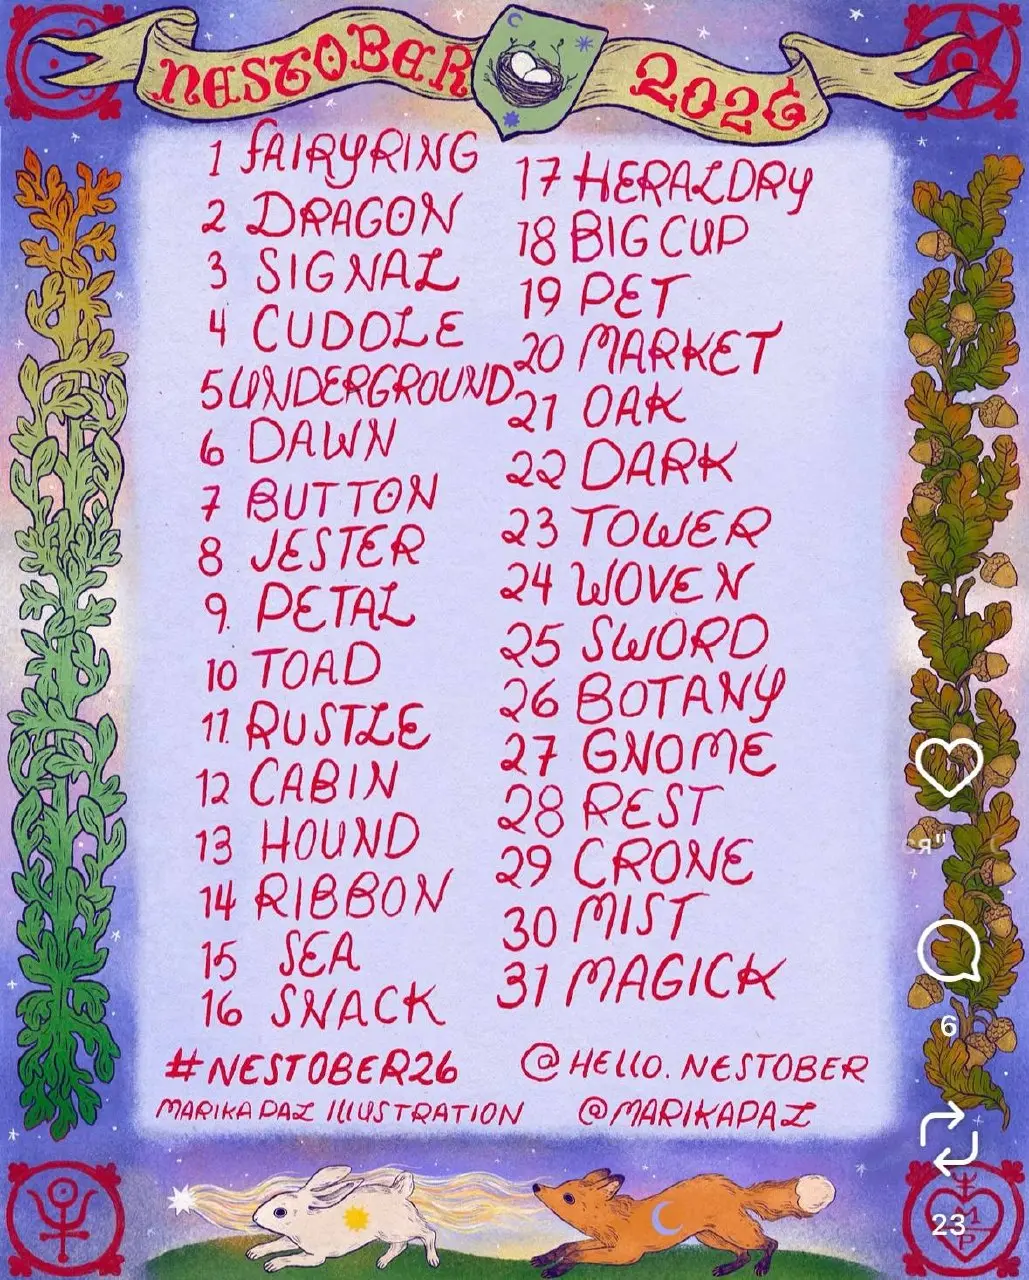 NESTOBER 2026
1 FAIRYRING
2 DRAGON
3 SIGNAL
4 CUDDLE
5 UNDERGROUND
6 DAWN
7 BUTTON
8 JESTER
9. PETAL
10 TOAD
11. RUSTLE
12 CABIN
13 HOUND
14 RIBBON
15 SEA
16 SNACK
17 HERALDRY
18 BIG CUP
19 PET
20 MARKET
21 OAK
22 DARK
23 TOWER
24 WOVEN
25 SWORD
26 BOTANY
27 GNOME
28 REST
29 CRONE
30 MIST
31 MAGICK
#NESTOBER26
@HELLO.NESTOBER
MARIKA PAZ ILLUSTRATION
@MARIKAPAZ
ся"
6
23
M
P